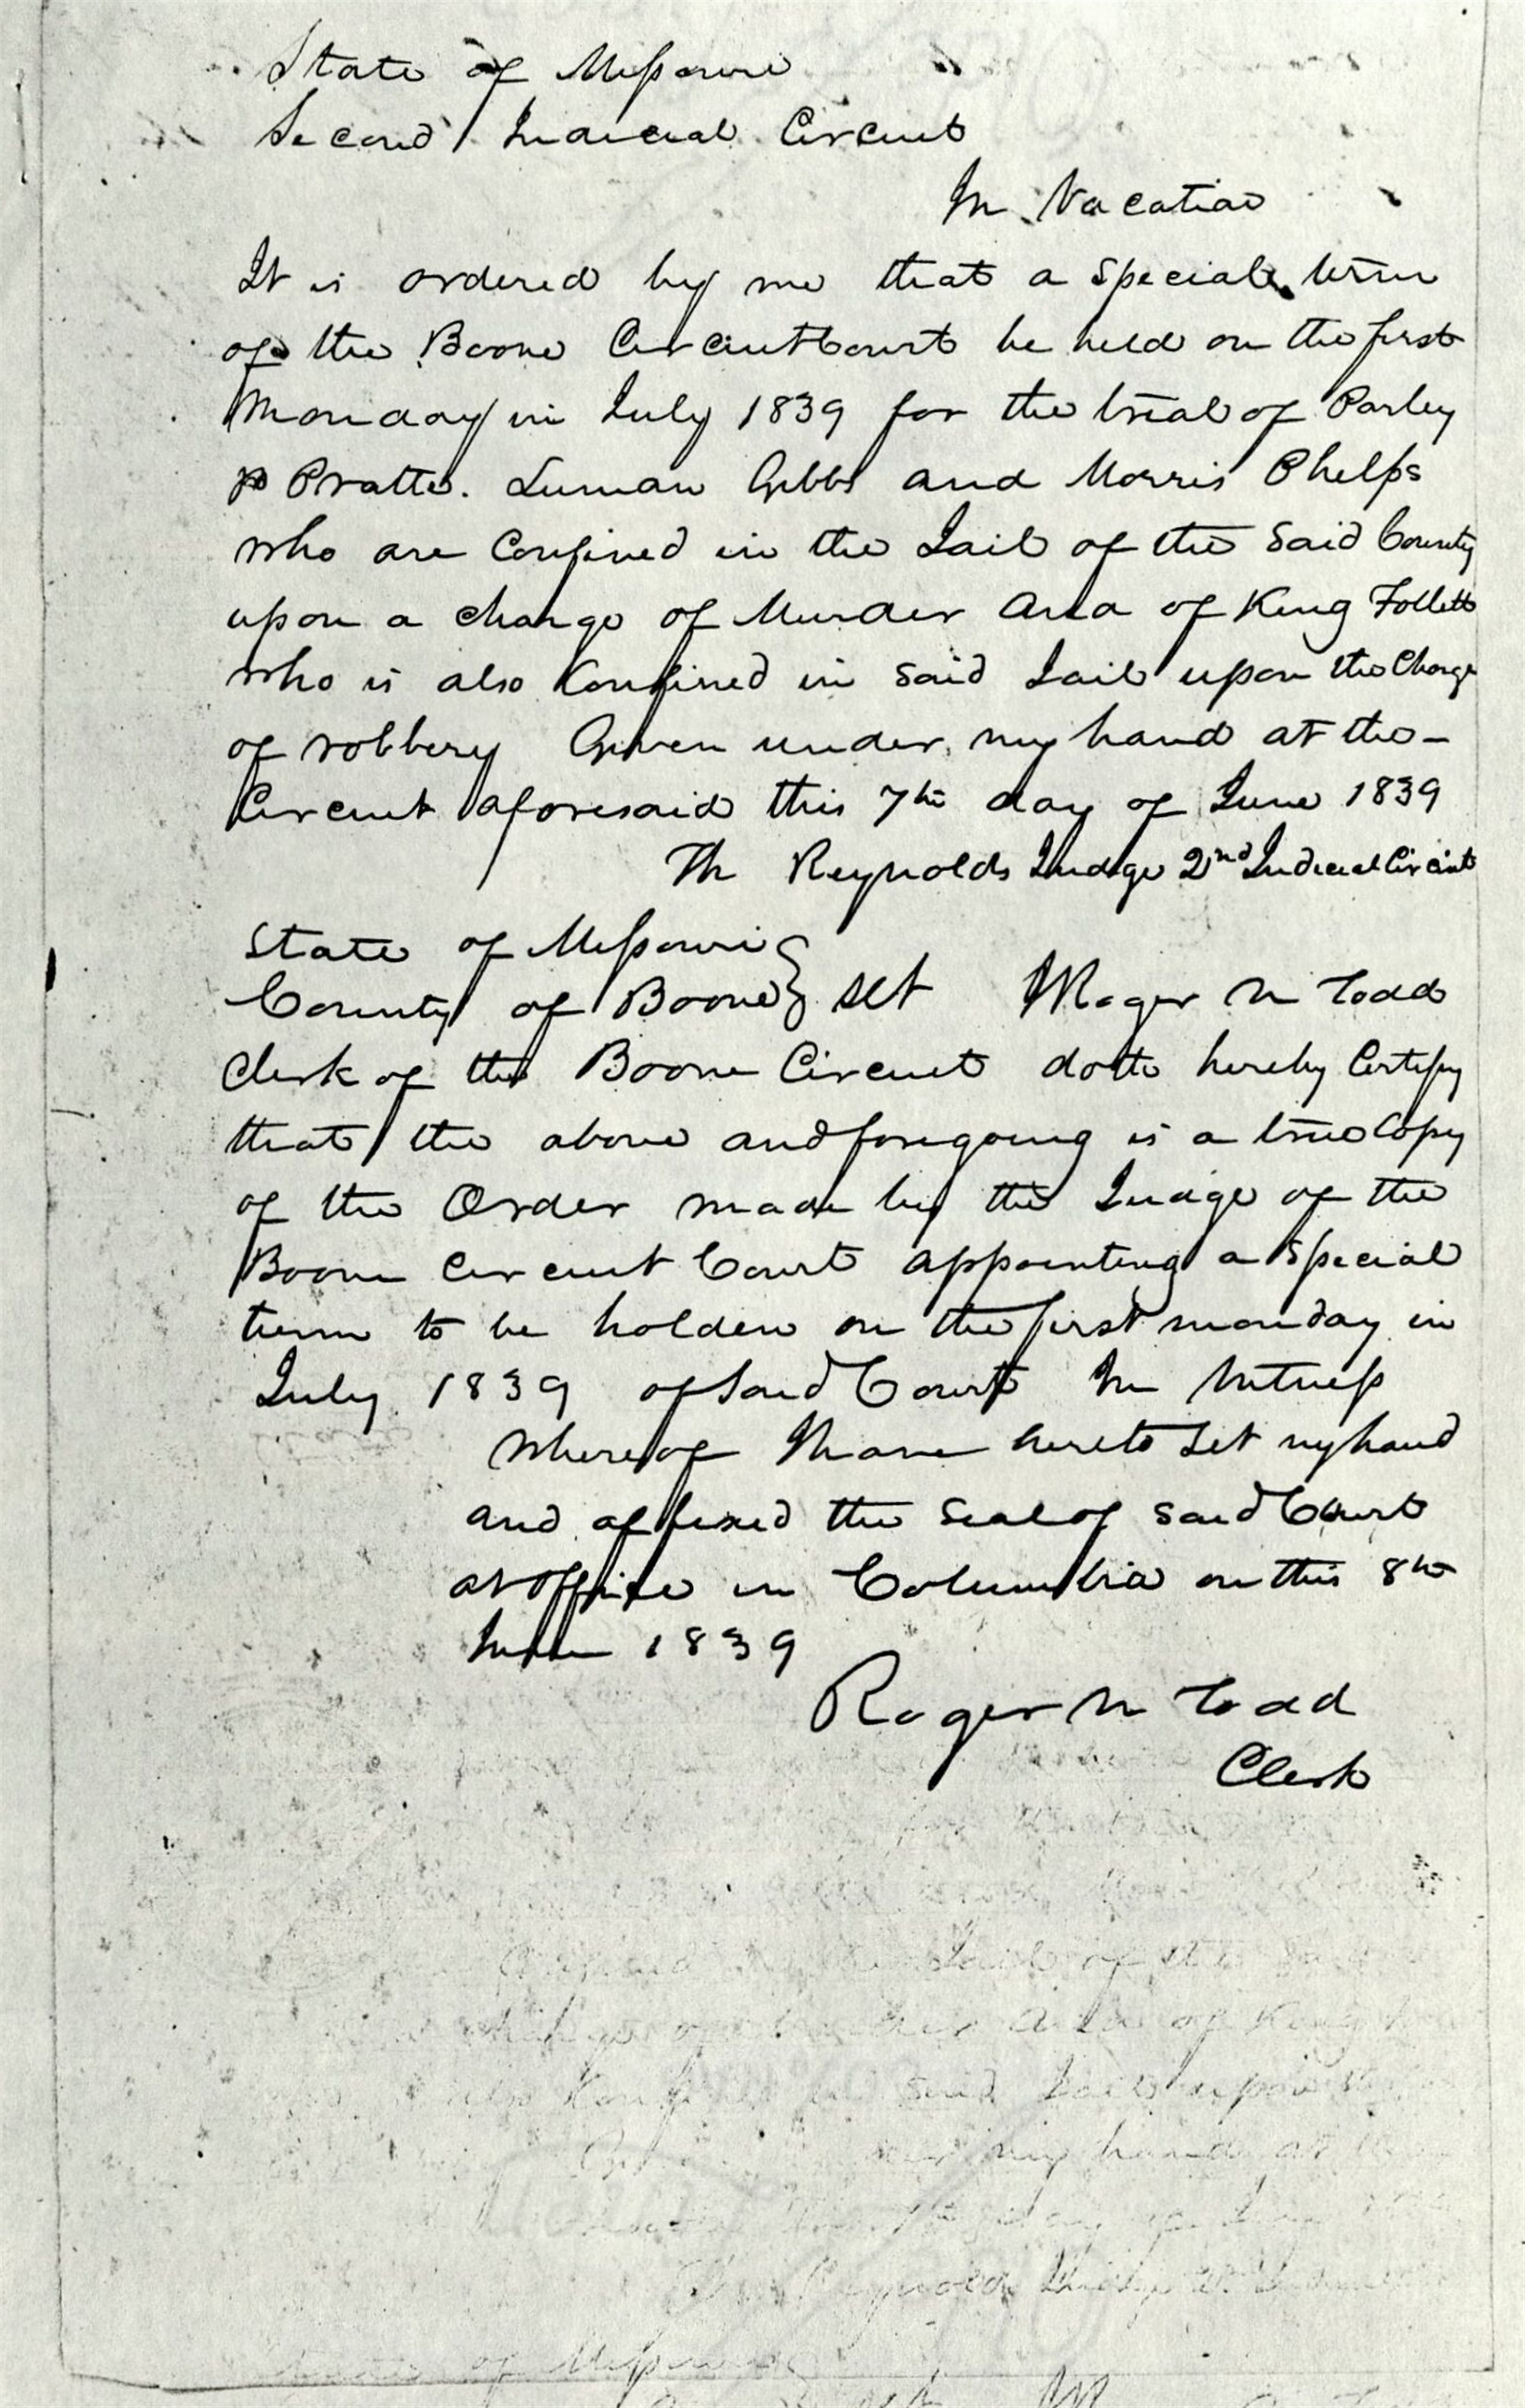 State of Missouri
Second Judicial Circuit
In Vacation
It is ordered by me that a special term
of the Boone Circuit Court be held on the first
Monday in July 1839 for the trial of Parley
P Pratte. Luman Gibbs and Morris Phelps
who are Confined in the Jail of the Said County
upon a charge of Murder And of King Follett
who is also Confined in said Jail upon the Charge
of robbery Given under my hand at the
Circuit aforesaid this 7th day of June 1839
Th Reynolds Judge 2nd Judicial Circuit
State of Missouri
County of Boone } sct I Roger N Todd
Clerk of the Boone Circuit doth hereby Certify
that the above and foregoing is a true Copy
of the Order made by the Judge of the
Boone Circuit Court appointing a Special
term to be holden on the first monday in
July 1839 of Said Court In Witness
whereof I have hereto set my hand
and affixed the Seal of said Court
at office in Columbia on this 8th
June 1839
Roger N Todd
Clerk
Jail of the
of King
said Jail upon
my hand at
day of
Reynolds Judge
of Missouri